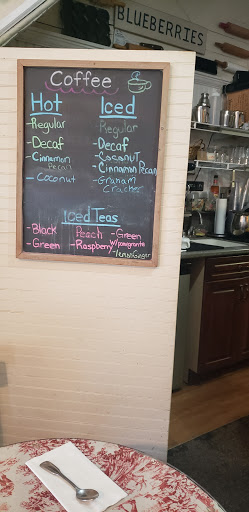 BLUEBERRIES
Coffee
Hot
-Regular
-Decaf
-Cinnamon
Pecan
-Coconut
Iced
Regular
-Decaf
-Coconut
-Cinnamon Pecan
-Graham
Cracker
Iced Teas
-Black
-Green
Peach
-Raspberry
-Green
w/pomegranate